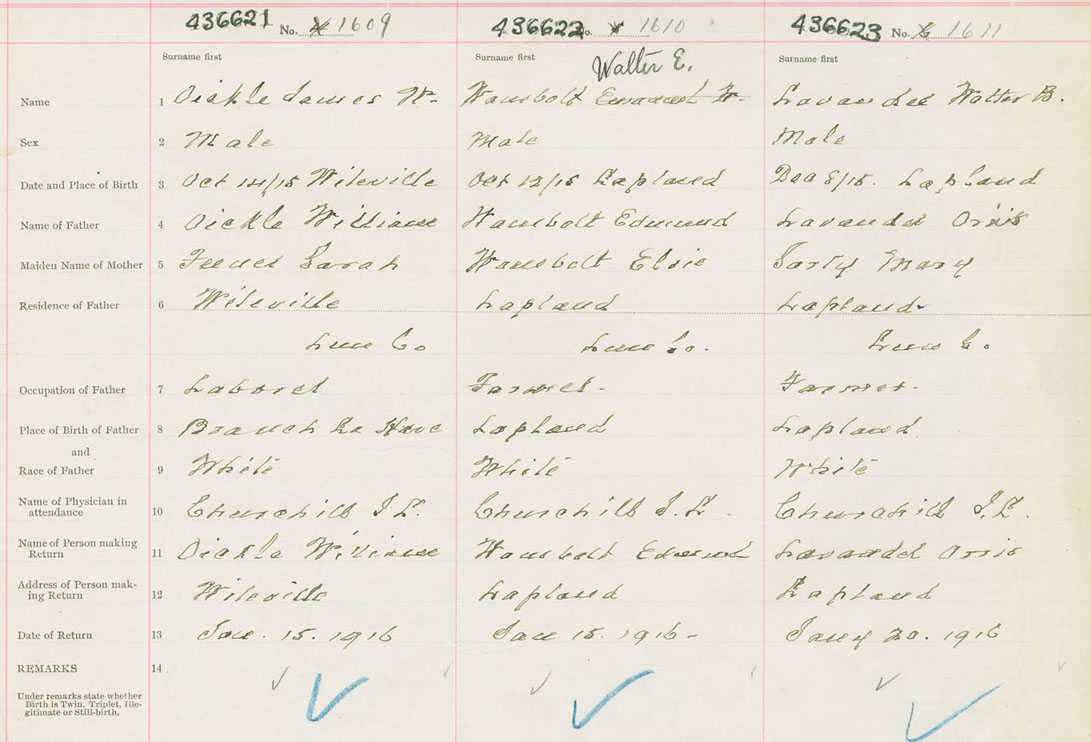 436621 No. 1609 436622 No. 1610 436623 No. 1611
Surname first Surname first Surname first
Walter E.
Name 1 Oickle James W. Wambolt Emanuel W. Lavander Walter B.
Sex 2 Male Male Male
Date and Place of Birth 3 Oct /15 Wileville Oct 12/15 Lapland Dec 8/15. Lapland
Name of Father 4 Oickle William Wambolt Edmund Lavander Orris
Maiden Name of Mother 5 Sarah Wambolt Elsie Mary
Residence of Father 6 Wileville Lapland Lapland
Lun Co Lun Co. Lun C.
Occupation of Father 7 Laborer Farmer. Farmer.
Place of Birth of Father 8 Branch La Have Lapland Lapland
and
Race of Father 9 White White White
Name of Physician in
attendance 10 Churchill J.L. Churchill J.L. Churchill J.L.
Name of Person making
Return 11 Oickle William Wambolt Edmund Lavander Orris
Address of Person mak-
ing Return 12 Wileville Lapland Lapland
Date of Return 13 Jan. 15. 1916 Jan 15. 1916- Jany 20. 1916
REMARKS 14
Under remarks state whether
Birth is Twin, Triplet, Ille-
gitimate or Still-birth.